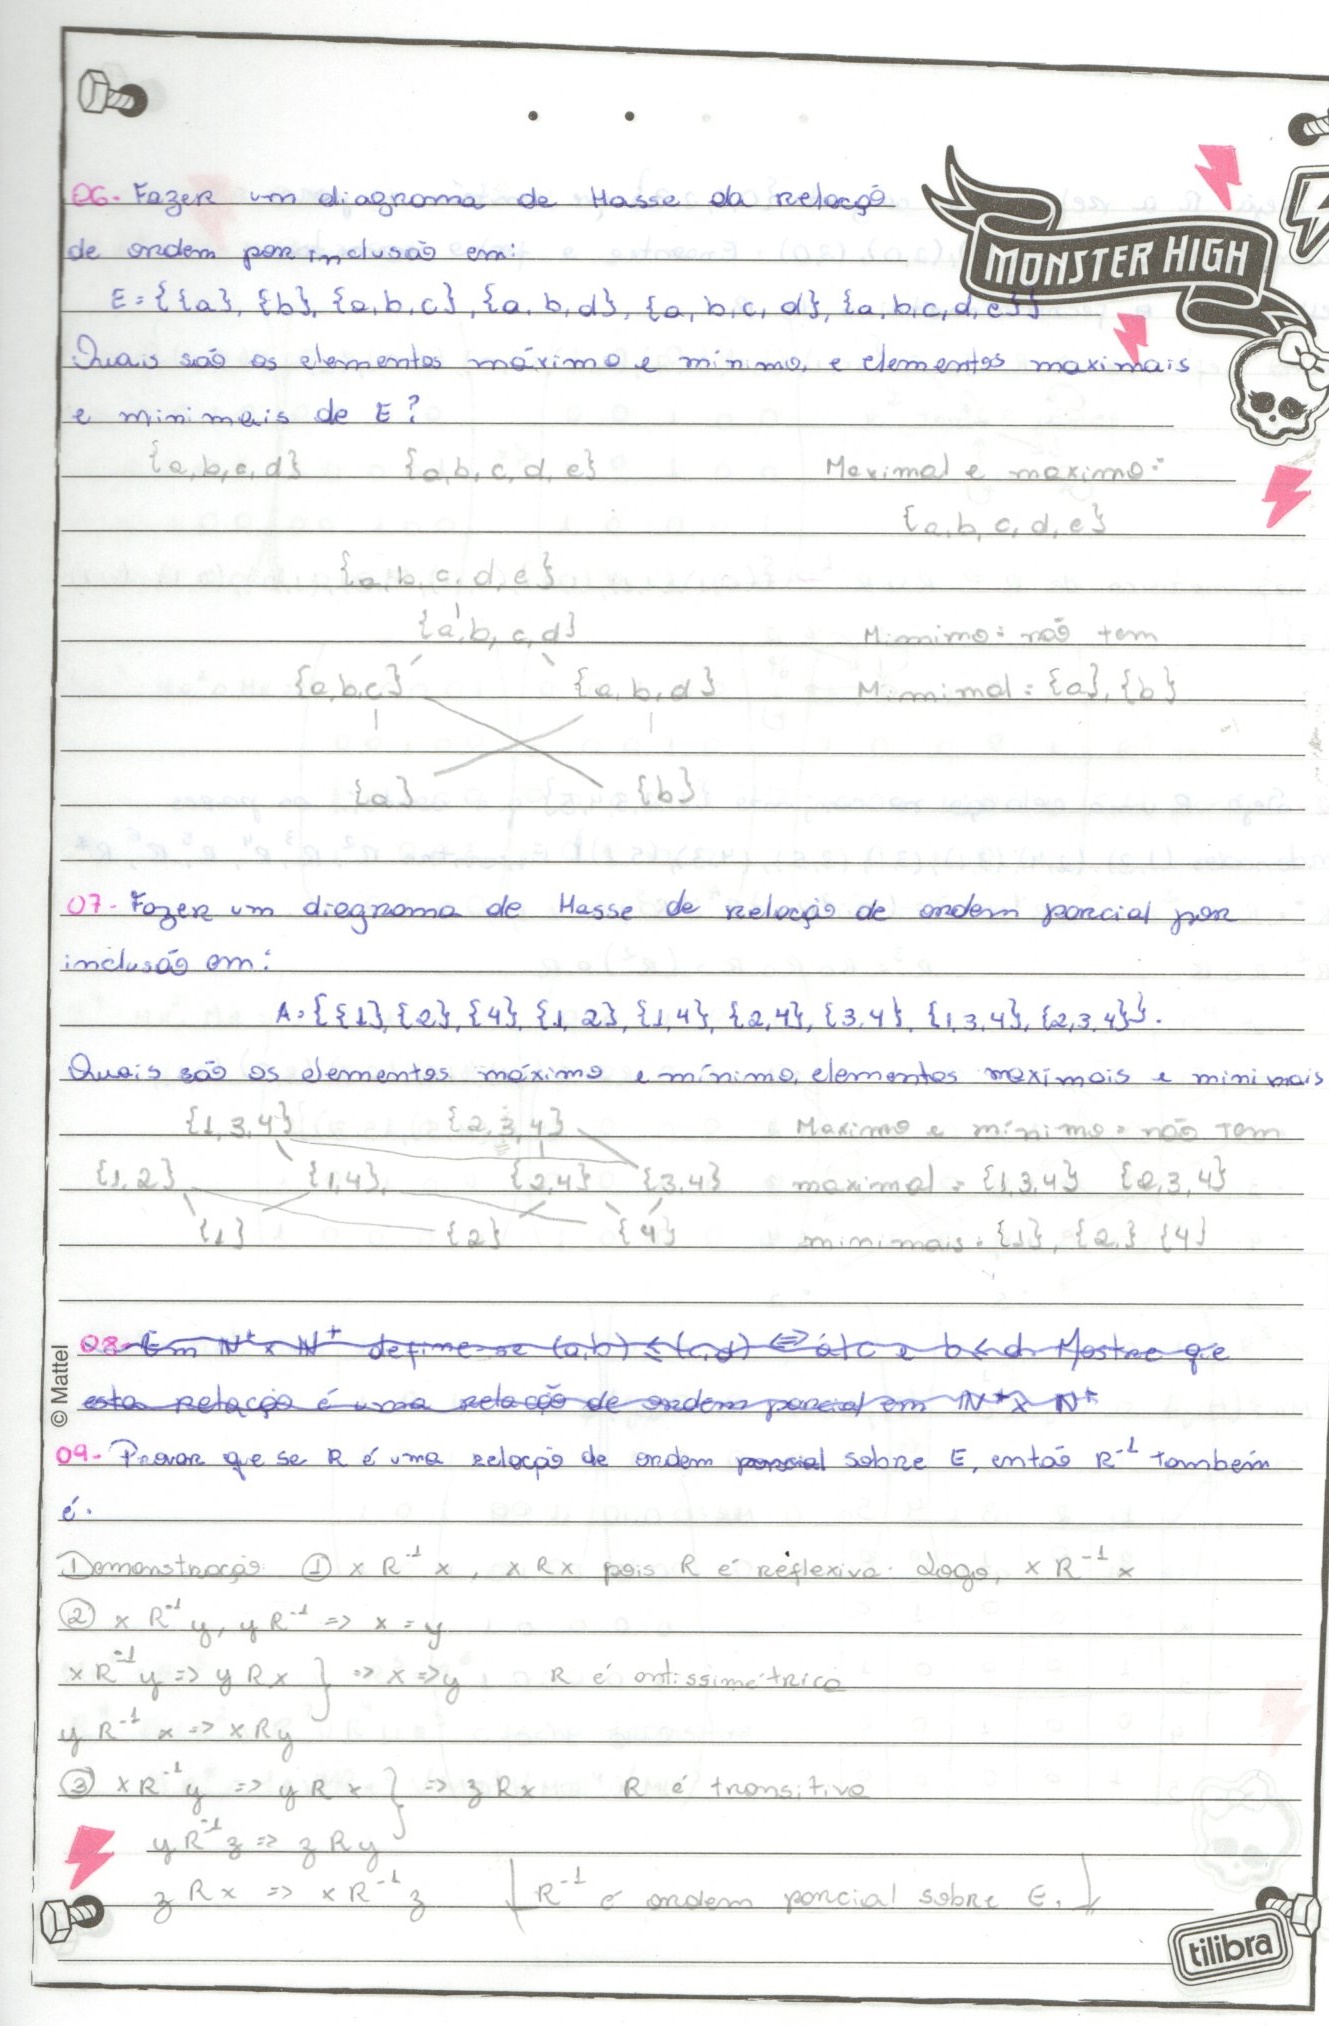 06- Fazer um diagrama de Hasse da relação
de ordem por inclusão em:
E = {{a}, {b}, {a,b,c}, {a,b,d}, {a,b,c,d}, {a,b,c,d,e}}
Quais são os elementos máximo e mínimo, e elementos maximais
e minimais de E?
{a,b,c,d} {a,b,c,d,e} Maximal e maximo:
{a,b,c,d,e}
{a,b,c,d,e}
{a,b,c,d} Minimo: não tem
{a,b,c} {a,b,d} Minimal: {a}, {b}
{a} {b}
07- Fazer um diagrama de Hasse de relação de ordem parcial por
inclusão em:
A = {{1}, {2}, {4}, {1,2}, {1,4}, {2,4}, {3,4}, {1,3,4}, {2,3,4}}.
Quais são os elementos máximo e mínimo, elementos maximais e minimais
{1,3,4} {2,3,4} Maximo e mínimo = não tem
{1,2} {1,4} {2,4} {3,4} maximal = {1,3,4} {2,3,4}
{1} {2} {4} minimais: {1}, {2,} {4}
08- Em N+ x N+ define-se (a,b) ≤ (c,d) <=> a/c e b≤d. Mostre que
esta relação é uma relação de ordem parcial em N+ x N+
09- Provar que se R é uma relação de ordem parcial sobre E, então R⁻¹ também
é.
Demonstração: ① x R⁻¹ x, x R x pois R é reflexiva. Logo, x R⁻¹ x
② x R⁻¹ y, y R⁻¹ => x = y
x R⁻¹ y => y R x } => x => y R é antissimétrica
y R⁻¹ x => x R y
③ x R⁻¹ y => y R x } => z R x R é transitiva
y R⁻¹ z => z R y
z R x => x R⁻¹ z R⁻¹ é ordem parcial sobre E.
MONSTER HIGH
© Mattel
tilibra